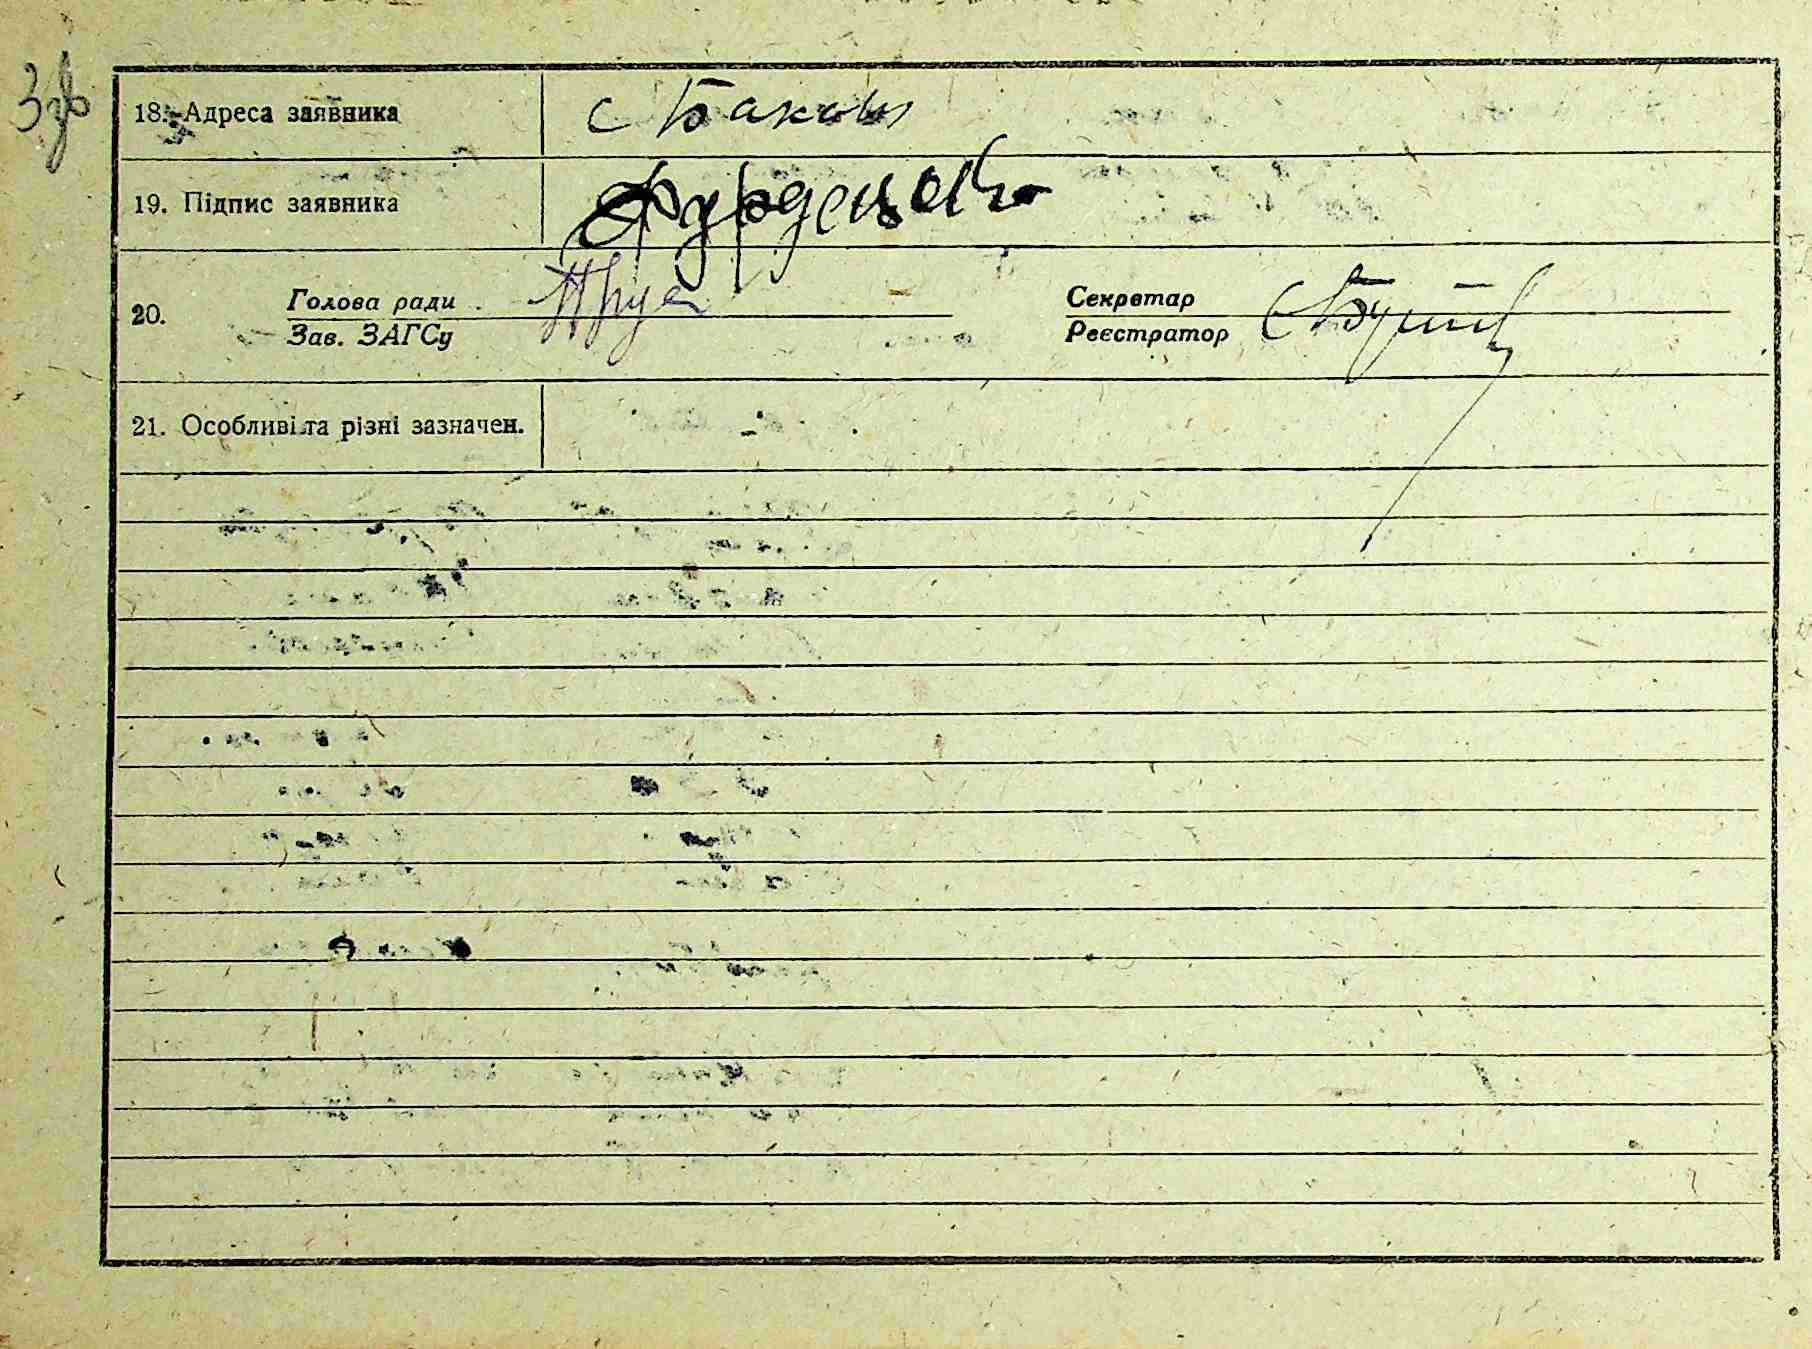 3зв
18. Адреса заявника с Бакаи
19. Підпис заявника
20. Голова ради
Зав. ЗАГСу
Секретар
Реєстратор
21. Особливі та різні зазначен. -